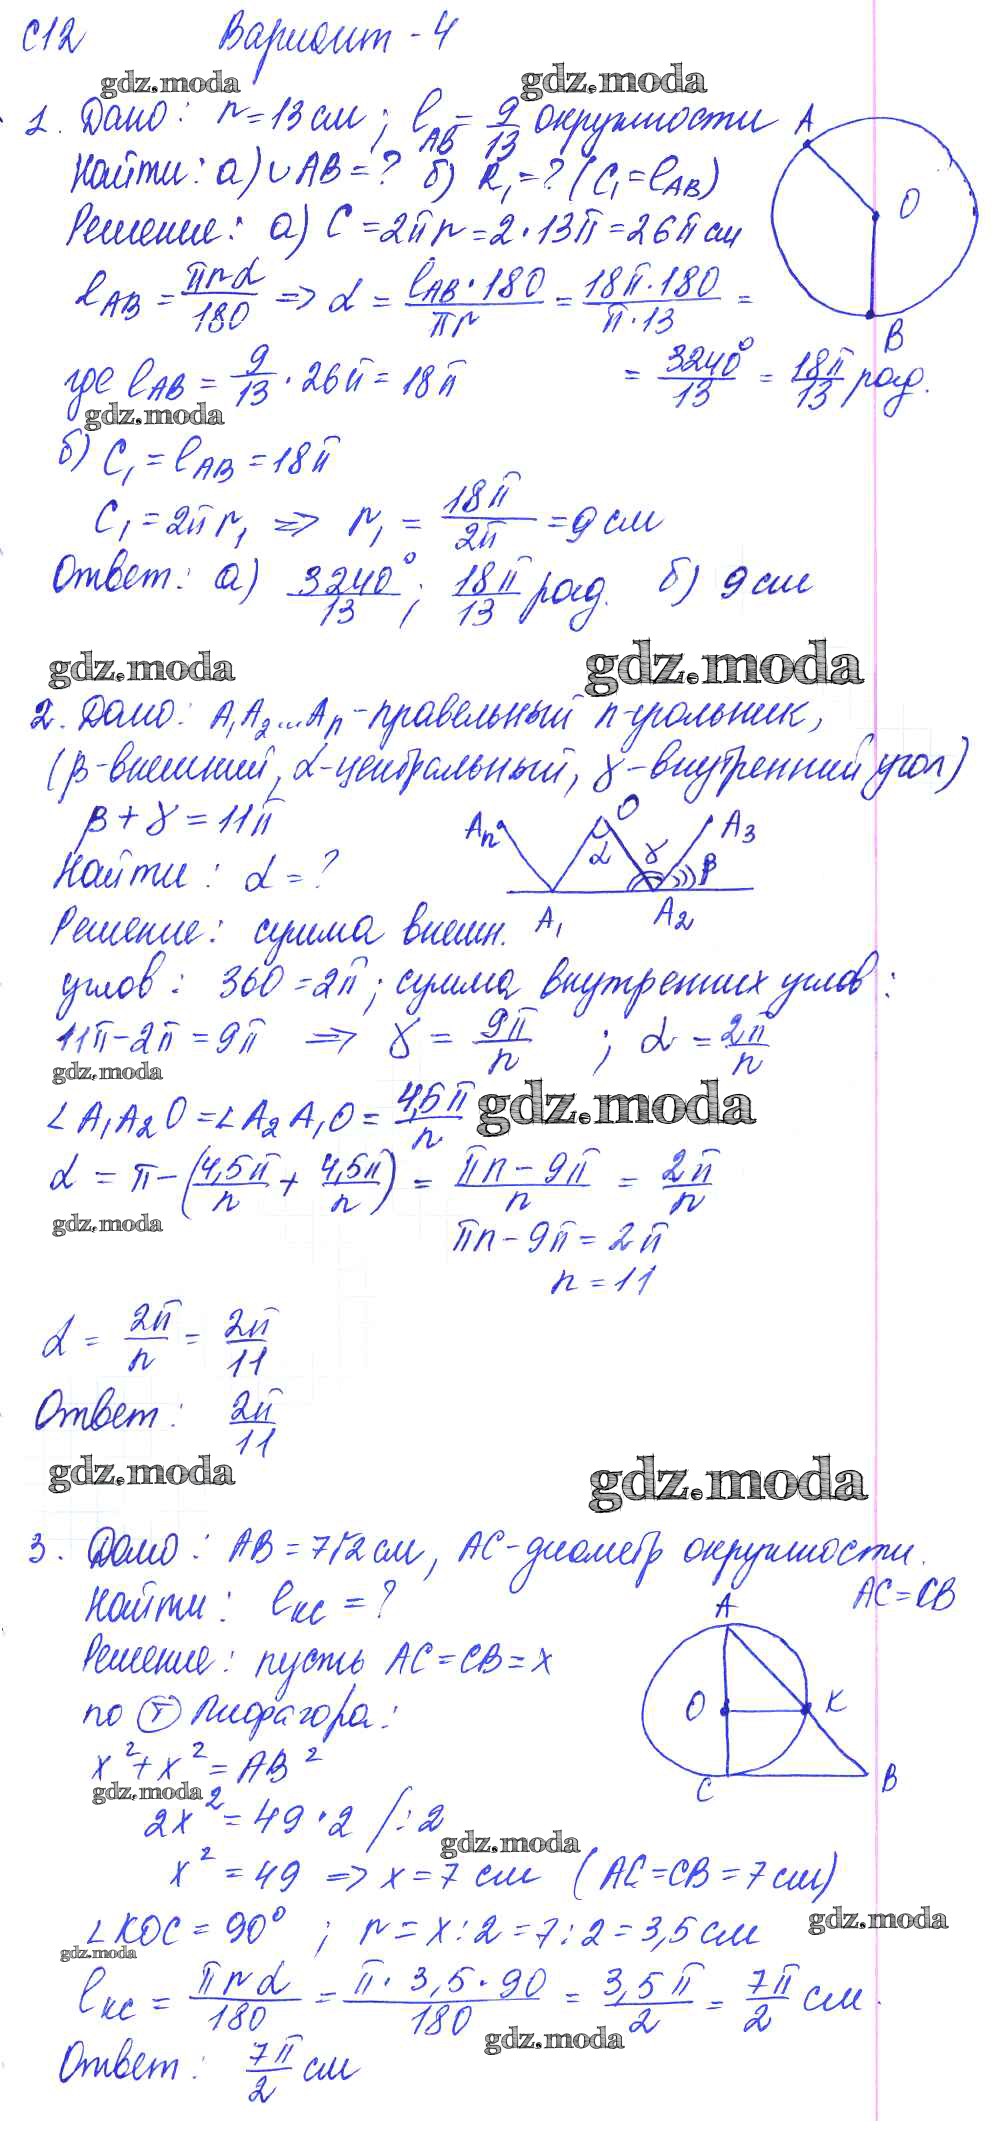 С12 Вариант - 4
gdz.moda gdz.moda
1. Дано: r = 13 см; l_AB = 9/13 окружности
Найти: а) ∪AB = ? б) R₁ = ? (C₁ = l_AB)
Решение: а) C = 2πr = 2 · 13π = 26π см
A
O
B
l_AB = πrα/180 => α = l_AB · 180/πr = 18π · 180/π · 13 =
где l_AB = 9/13 · 26π = 18π
= 3240°/13 = 18π/13 рад.
gdz.moda
б) C₁ = l_AB = 18π
C₁ = 2πr₁ => r₁ = 18π/2π = 9 см
Ответ: а) 3240°/13; 18π/13 рад. б) 9 см
gdz.moda gdz.moda
2. Дано: A₁A₂...Aₙ - правельный n-угольник,
(β - внешний, α - центральный, γ - внутренний угол)
β + γ = 11π
Найти: α = ?
Aₙ O α γ A₃ β
A₁ A₂
Решение: сумма внешн.
углов: 360 = 2π; сумма внутренних углов:
11π - 2π = 9π => γ = 9π/n ; α = 2π/n
gdz.moda
∠A₁A₂O = ∠A₂A₁O = 4,5π/n
gdz.moda
α = π - (4,5π/n + 4,5π/n) = πn - 9π/n = 2π/n
gdz.moda
πn - 9π = 2π
n = 11
α = 2π/n = 2π/11
Ответ: 2π/11
gdz.moda gdz.moda
3. Дано: AB = 7√2 см, AC - диаметр окружности.
AC = CB
Найти: l_KC = ?
Решение: пусть AC = CB = x
по Т Пифагора:
A
O K
C B
x² + x² = AB²
gdz.moda
2x² = 49 · 2 /: 2
gdz.moda
x² = 49 => x = 7 см (AC = CB = 7 см)
∠KOC = 90° ; r = x : 2 = 7 : 2 = 3,5 см
gdz.moda
gdz.moda
l_KC = πrα/180 = π · 3,5 · 90/180 = 3,5π/2 = 7π/2 см.
gdz.moda
Ответ: 7π/2 см